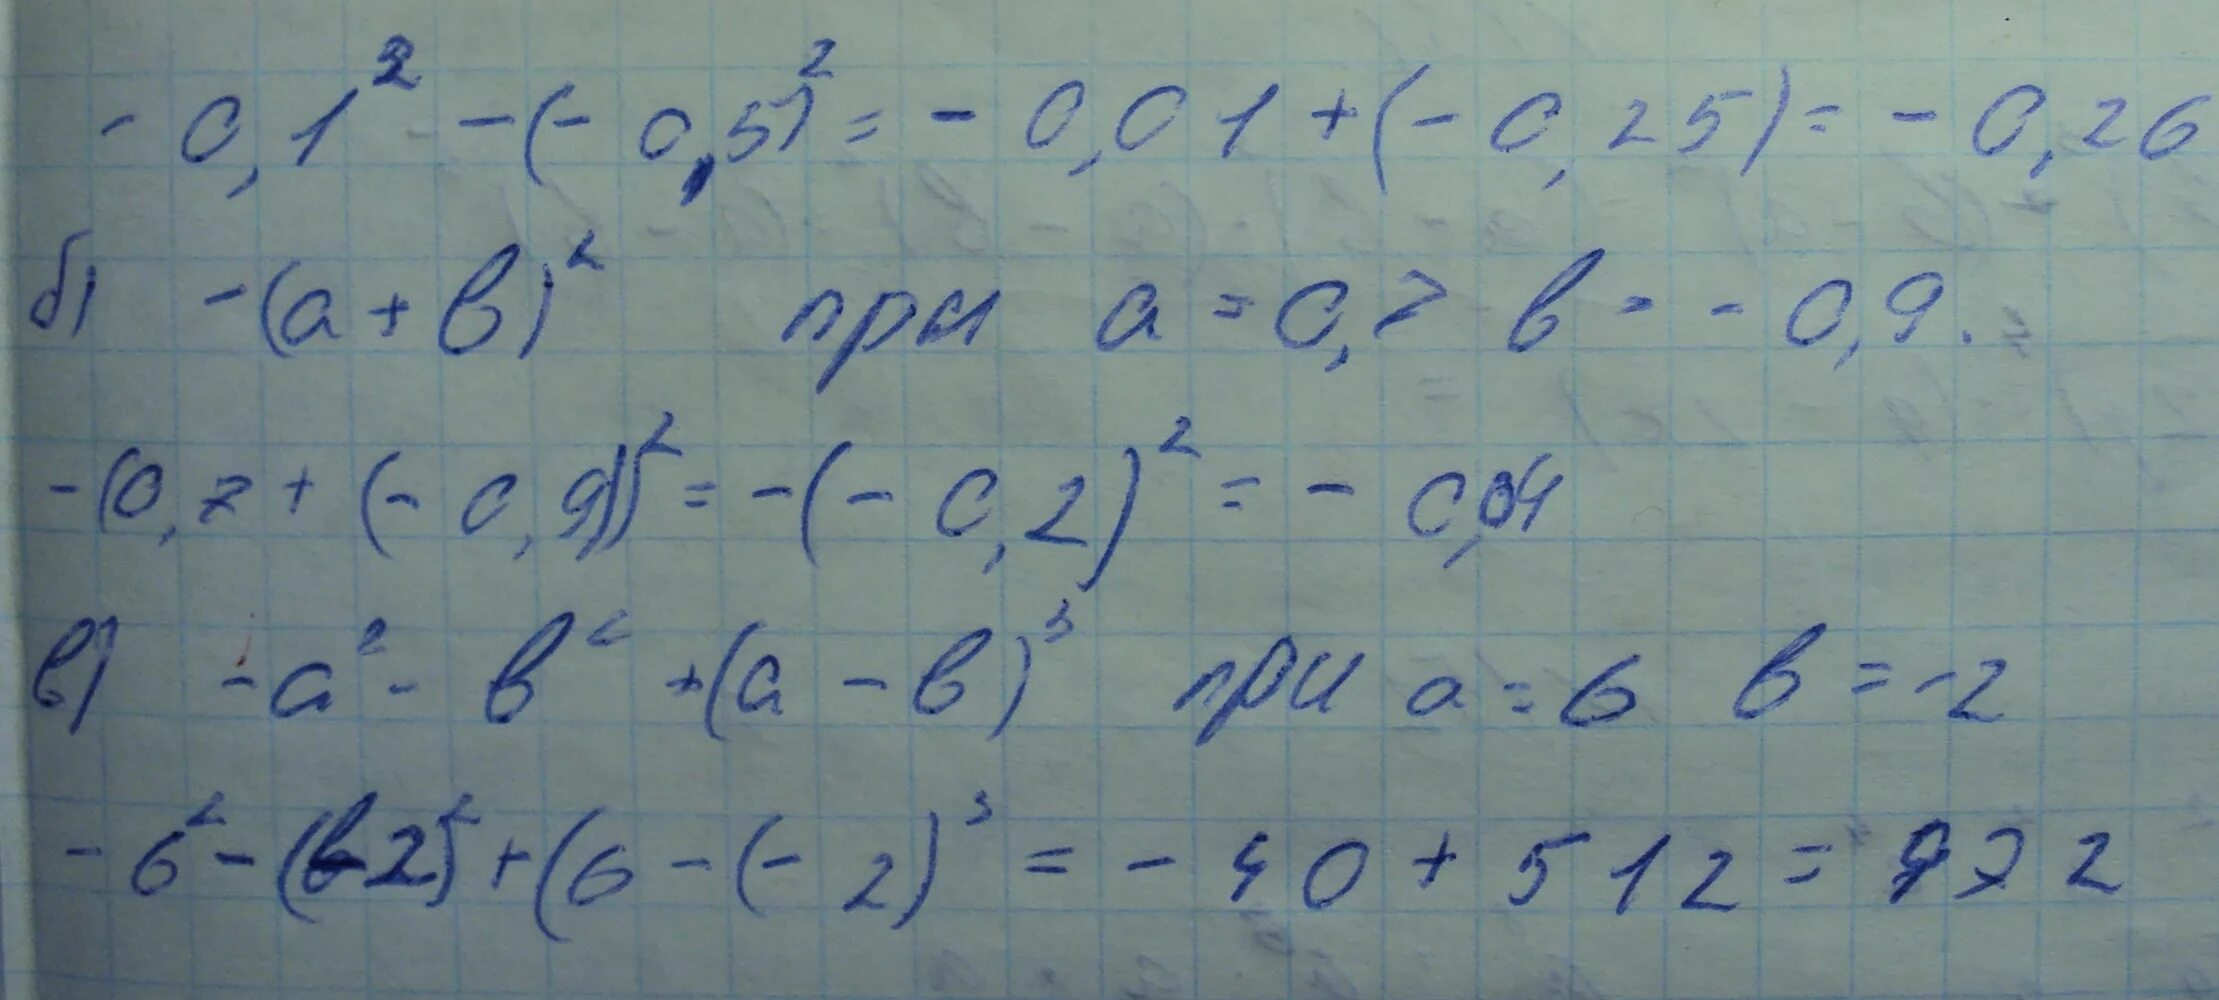 - 0,1² - (- 0,5)² = - 0,01 + (- 0,25) = - 0,26
б) -(a + b)² при a = 0,7 b = - 0,9.
-(0,7 + (- 0,9))² = -(- 0,2)² = - 0,04
в) -a² - b² + (a - b)³ при a = 6 b = -2
- 6² - (-2)² + (6 - (- 2)³ = - 40 + 512 = 472